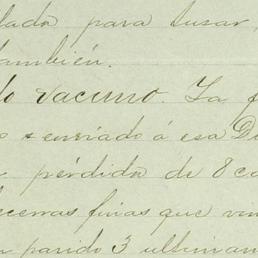 lada para tusar,
también.
do vacuno. La f
s enviado á esa D
pérdida de 8 ca
ecerras finas que vin
parido 3 ultimam